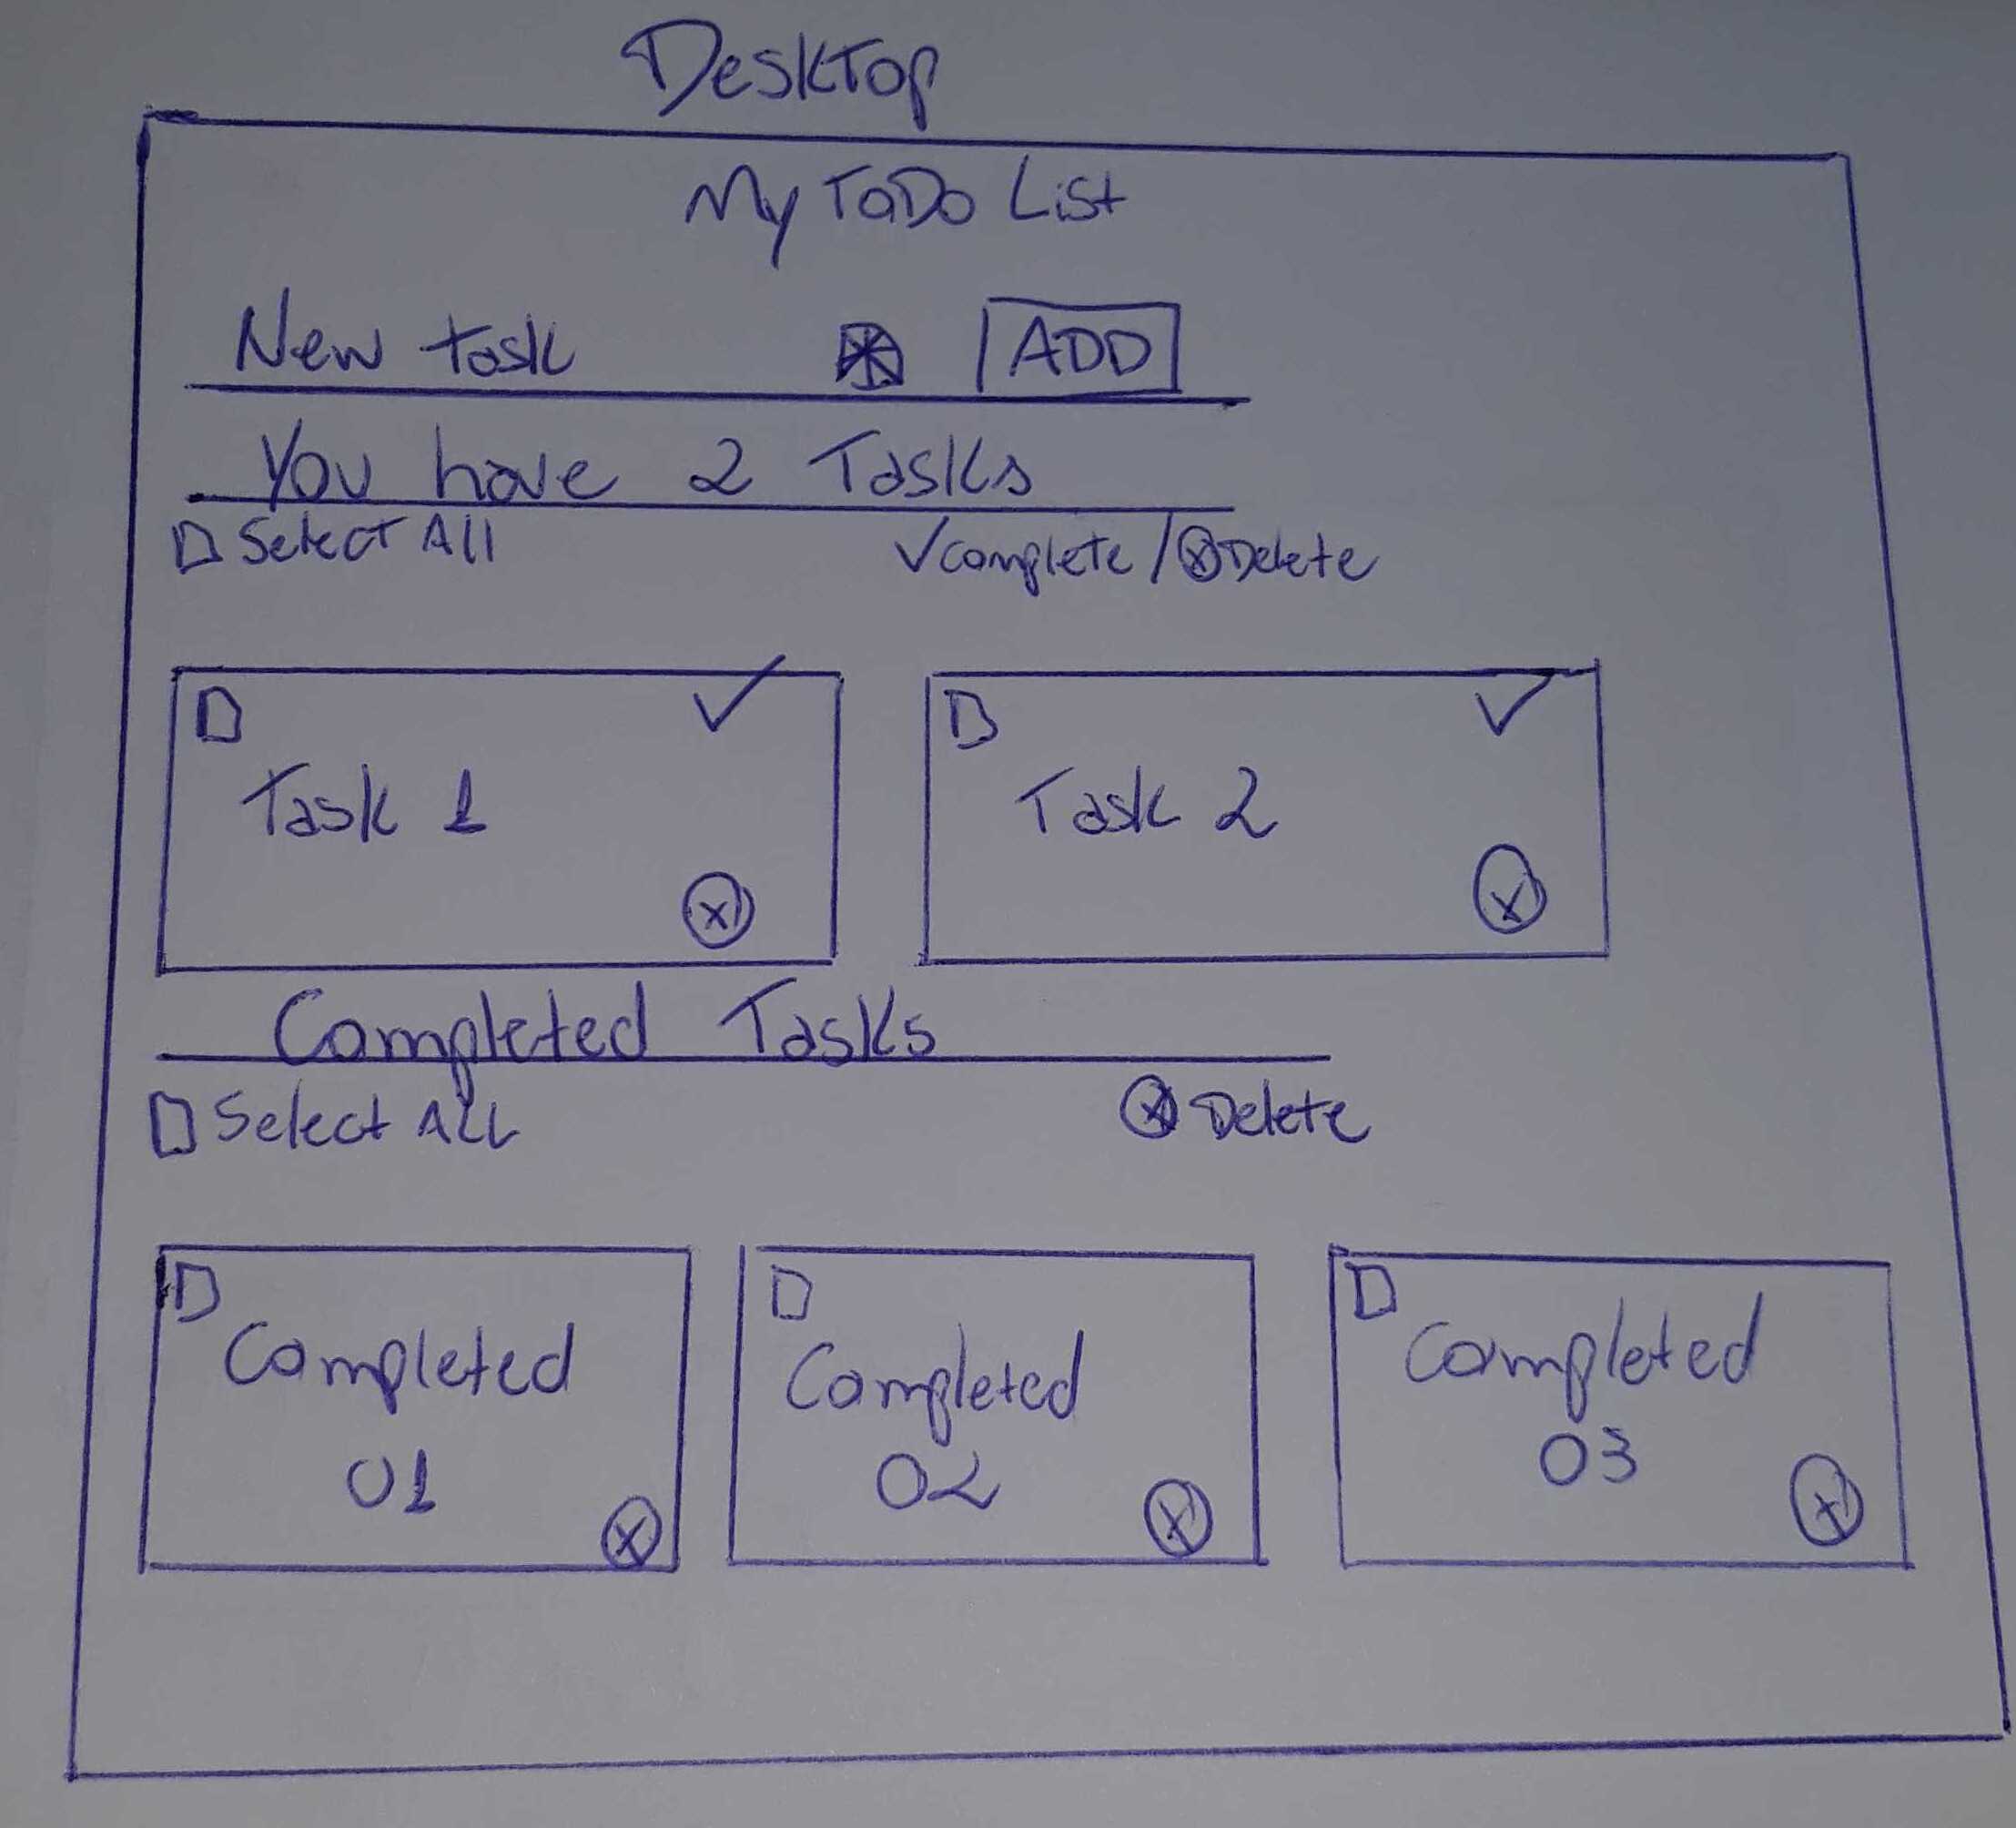 Desktop
My ToDo List
New task ADD
You have 2 Tasks
Select All ✓complete / ⓧDelete
Task 1
Task 2
Completed Tasks
Select ALL ⓧ Delete
Completed
01
Completed
02
Completed
03